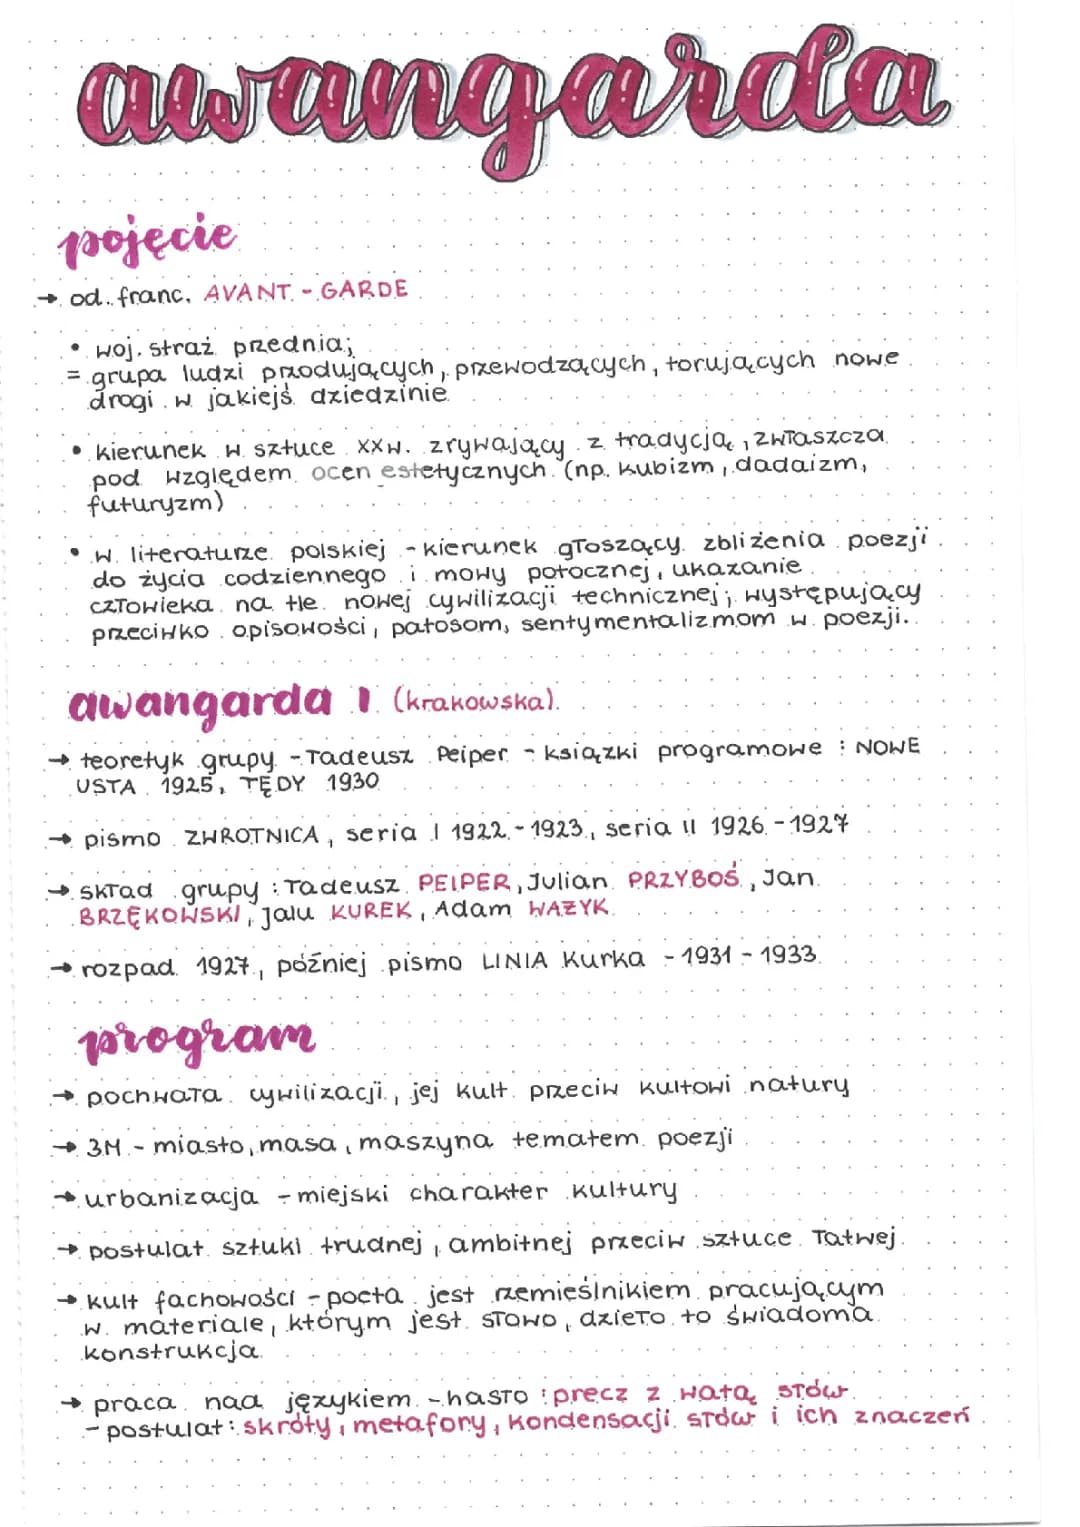 awangarda
pojęcie
→ od. franc. AVANT - GARDE
• woj. straż przednia;
= grupa ludzi przodujących, przewodzących, torujących nowe
drogi w jakiejś dziedzinie
• kierunek w sztuce XXw. zrywający z tradycją, zwłaszcza
pod względem ocen estetycznych (np. kubizm, dadaizm,
futuryzm)
• w literaturze polskiej - kierunek głoszący zbliżenia poezji
do życia codziennego i mowy potocznej, ukazanie
człowieka na tle nowej cywilizacji technicznej; występujący
przeciwko opisowości, patosom, sentymentalizmom w poezji.
awangarda I (krakowska)
→ teoretyk grupy - Tadeusz Peiper - książki programowe : NOWE
USTA 1925, TĘDY 1930
→ pismo ZWROTNICA, seria I 1922 - 1923, seria II 1926 - 1927
→ skład grupy : Tadeusz PEIPER, Julian PRZYBOŚ, Jan
BRZĘKOWSKI, Jalu KUREK, Adam WAŻYK
→ rozpad 1927, później pismo LINIA Kurka - 1931 - 1933
program
→ pochwała cywilizacji, jej kult przeciw kultowi natury
→ 3M - miasto, masa, maszyna tematem poezji
→ urbanizacja - miejski charakter kultury
→ postulat sztuki trudnej, ambitnej przeciw sztuce łatwej
→ kult fachowości - poeta jest rzemieślnikiem pracującym
w materiale, którym jest słowo, dzieło to świadoma
konstrukcja
→ praca nad językiem - hasło : precz z watą słów
- postulat : skróty, metafory, kondensacji słów i ich znaczeń